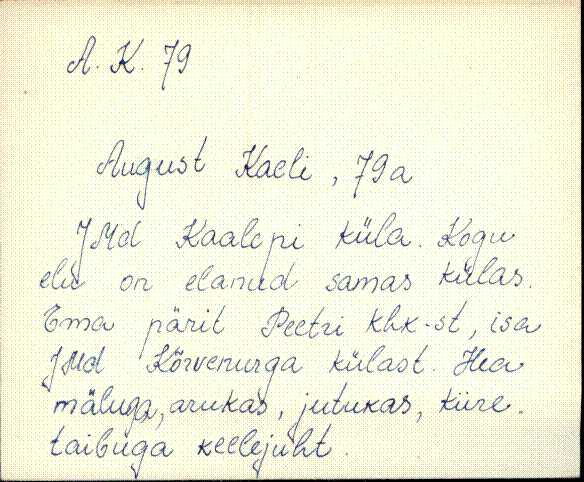 A. K. 79
August Kaeli, 79a
JMd Kaalepi küla. Kogu
elu on elanud samas külas.
Ema pärit Peetri khk-st, isa
JMd Kõrvenurga külast. Hea
mäluga, arukas, jutukas, kiire.
taibuga keelejuht.